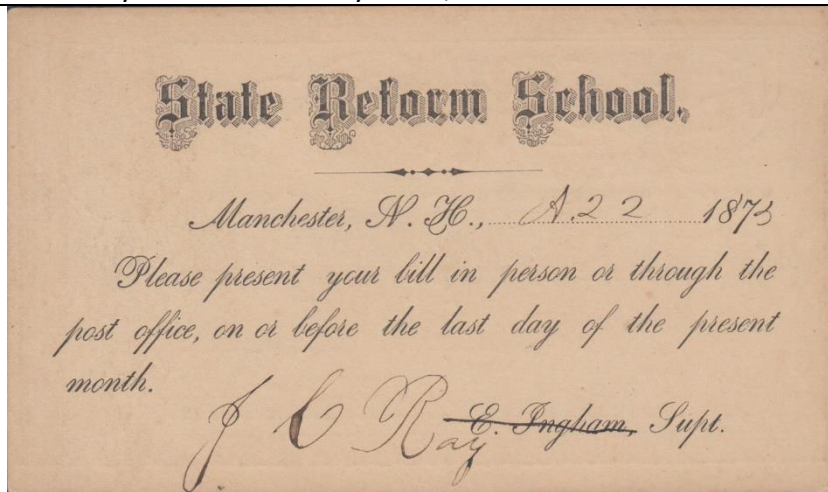 State Reform School.
Manchester, N. H., A. 22 1875
Please present your bill in person or through the
post office, on or before the last day of the present
month.
J C Ray E. Ingham, Supt.